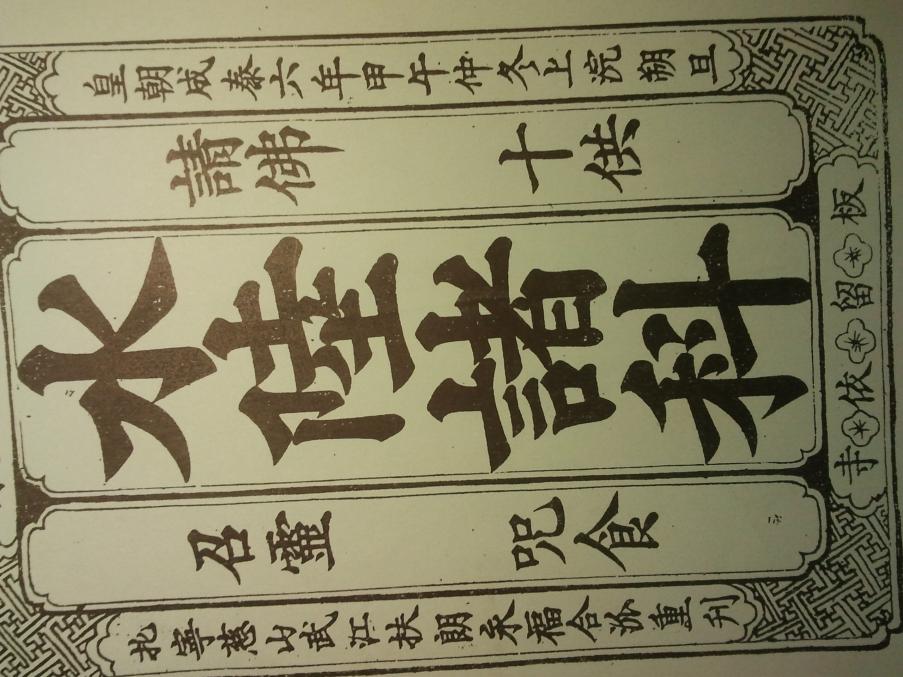 皇朝成泰六年甲午仲冬上浣朔旦
請佛　十供
水陸諸科
召靈　呪食
北寧慈山武江扶朗永福合派重刊
板留依寺